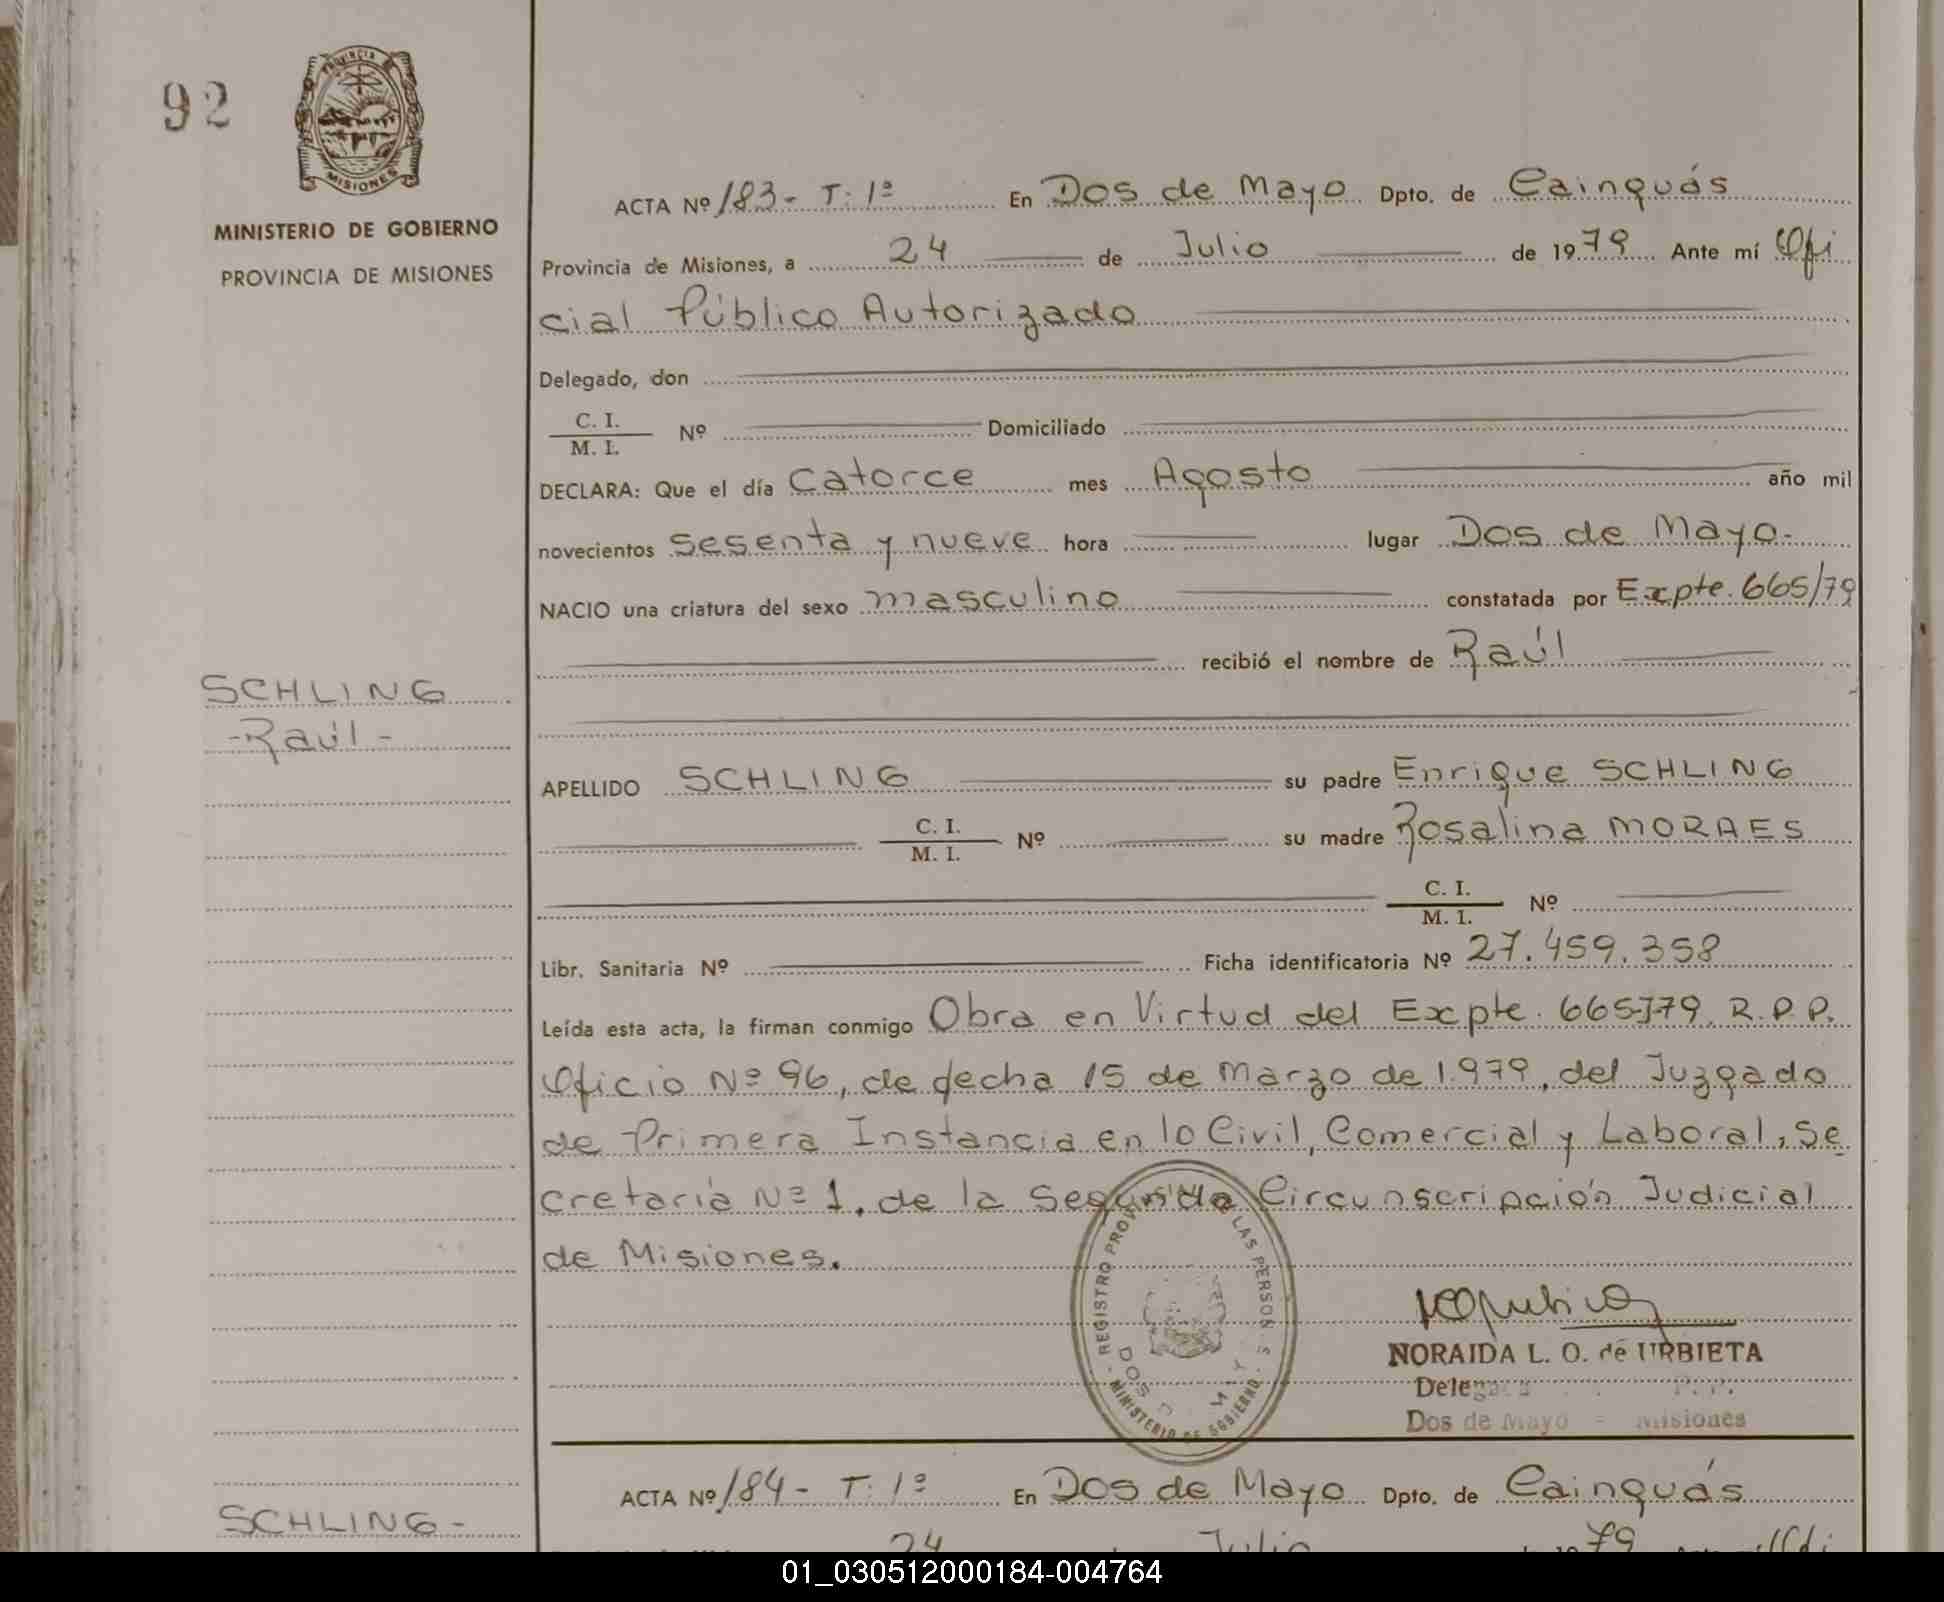 92
PROVINCIA
MISIONES
MINISTERIO DE GOBIERNO
PROVINCIA DE MISIONES
ACTA Nº 183- T: 1º En Dos de Mayo Dpto. de Cainguás
Provincia de Misiones, a 24 de Julio de 1979 Ante mí Ofi
cial Público Autorizado
Delegado, don
C. I.
M. I. Nº Domiciliado
DECLARA: Que el día Catorce mes Agosto año mil
novecientos sesenta y nueve hora lugar Dos de Mayo-
NACIO una criatura del sexo masculino constatada por Expte. 665/79
recibió el nombre de Raúl
SCHLING
-Raúl-
APELLIDO SCHLING su padre Enrique SCHLING
C. I.
M. I. Nº su madre Rosalina MORAES
C. I.
M. I. Nº
Libr. Sanitaria Nº Ficha identificatoria Nº 27.459.358
Leída esta acta, la firman conmigo Obra en Virtud del Expte. 665/79. R.P.P.
Oficio Nº 96, de fecha 15 de Marzo de 1.979, del Juzgado
de Primera Instancia en lo Civil, Comercial y Laboral, Se
cretaría Nº 1, de la Segunda Circunscripción Judicial
de Misiones.
REGISTRO LAS PERSON S
MINISTERIO DE GOBIERNO
DOS D MAY
NORAIDA L. O. de URBIETA
Delegada P. P.
Dos de Mayo - Misiones
ACTA Nº 184- T: 1º En Dos de Mayo Dpto. de Cainguás
SCHLING-
24 Julio 79 Ofi
01_030512000184-004764